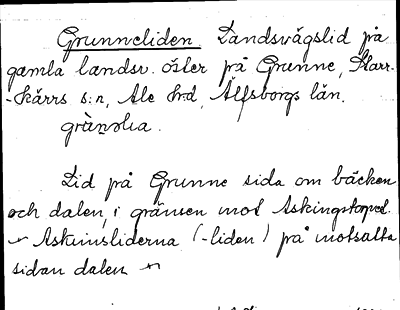 Grunneliden. Landsvägslid på
gamla landsv. öster på Grunne, Starr-
-kärrs s:n, Ale hrd, Älfsborgs län.
Lid på Grunne sida om bäcken
och dalen, i gränsen mot Askingstorpd.
Askimsliderna (-liden) på motsatta
sidan dalen